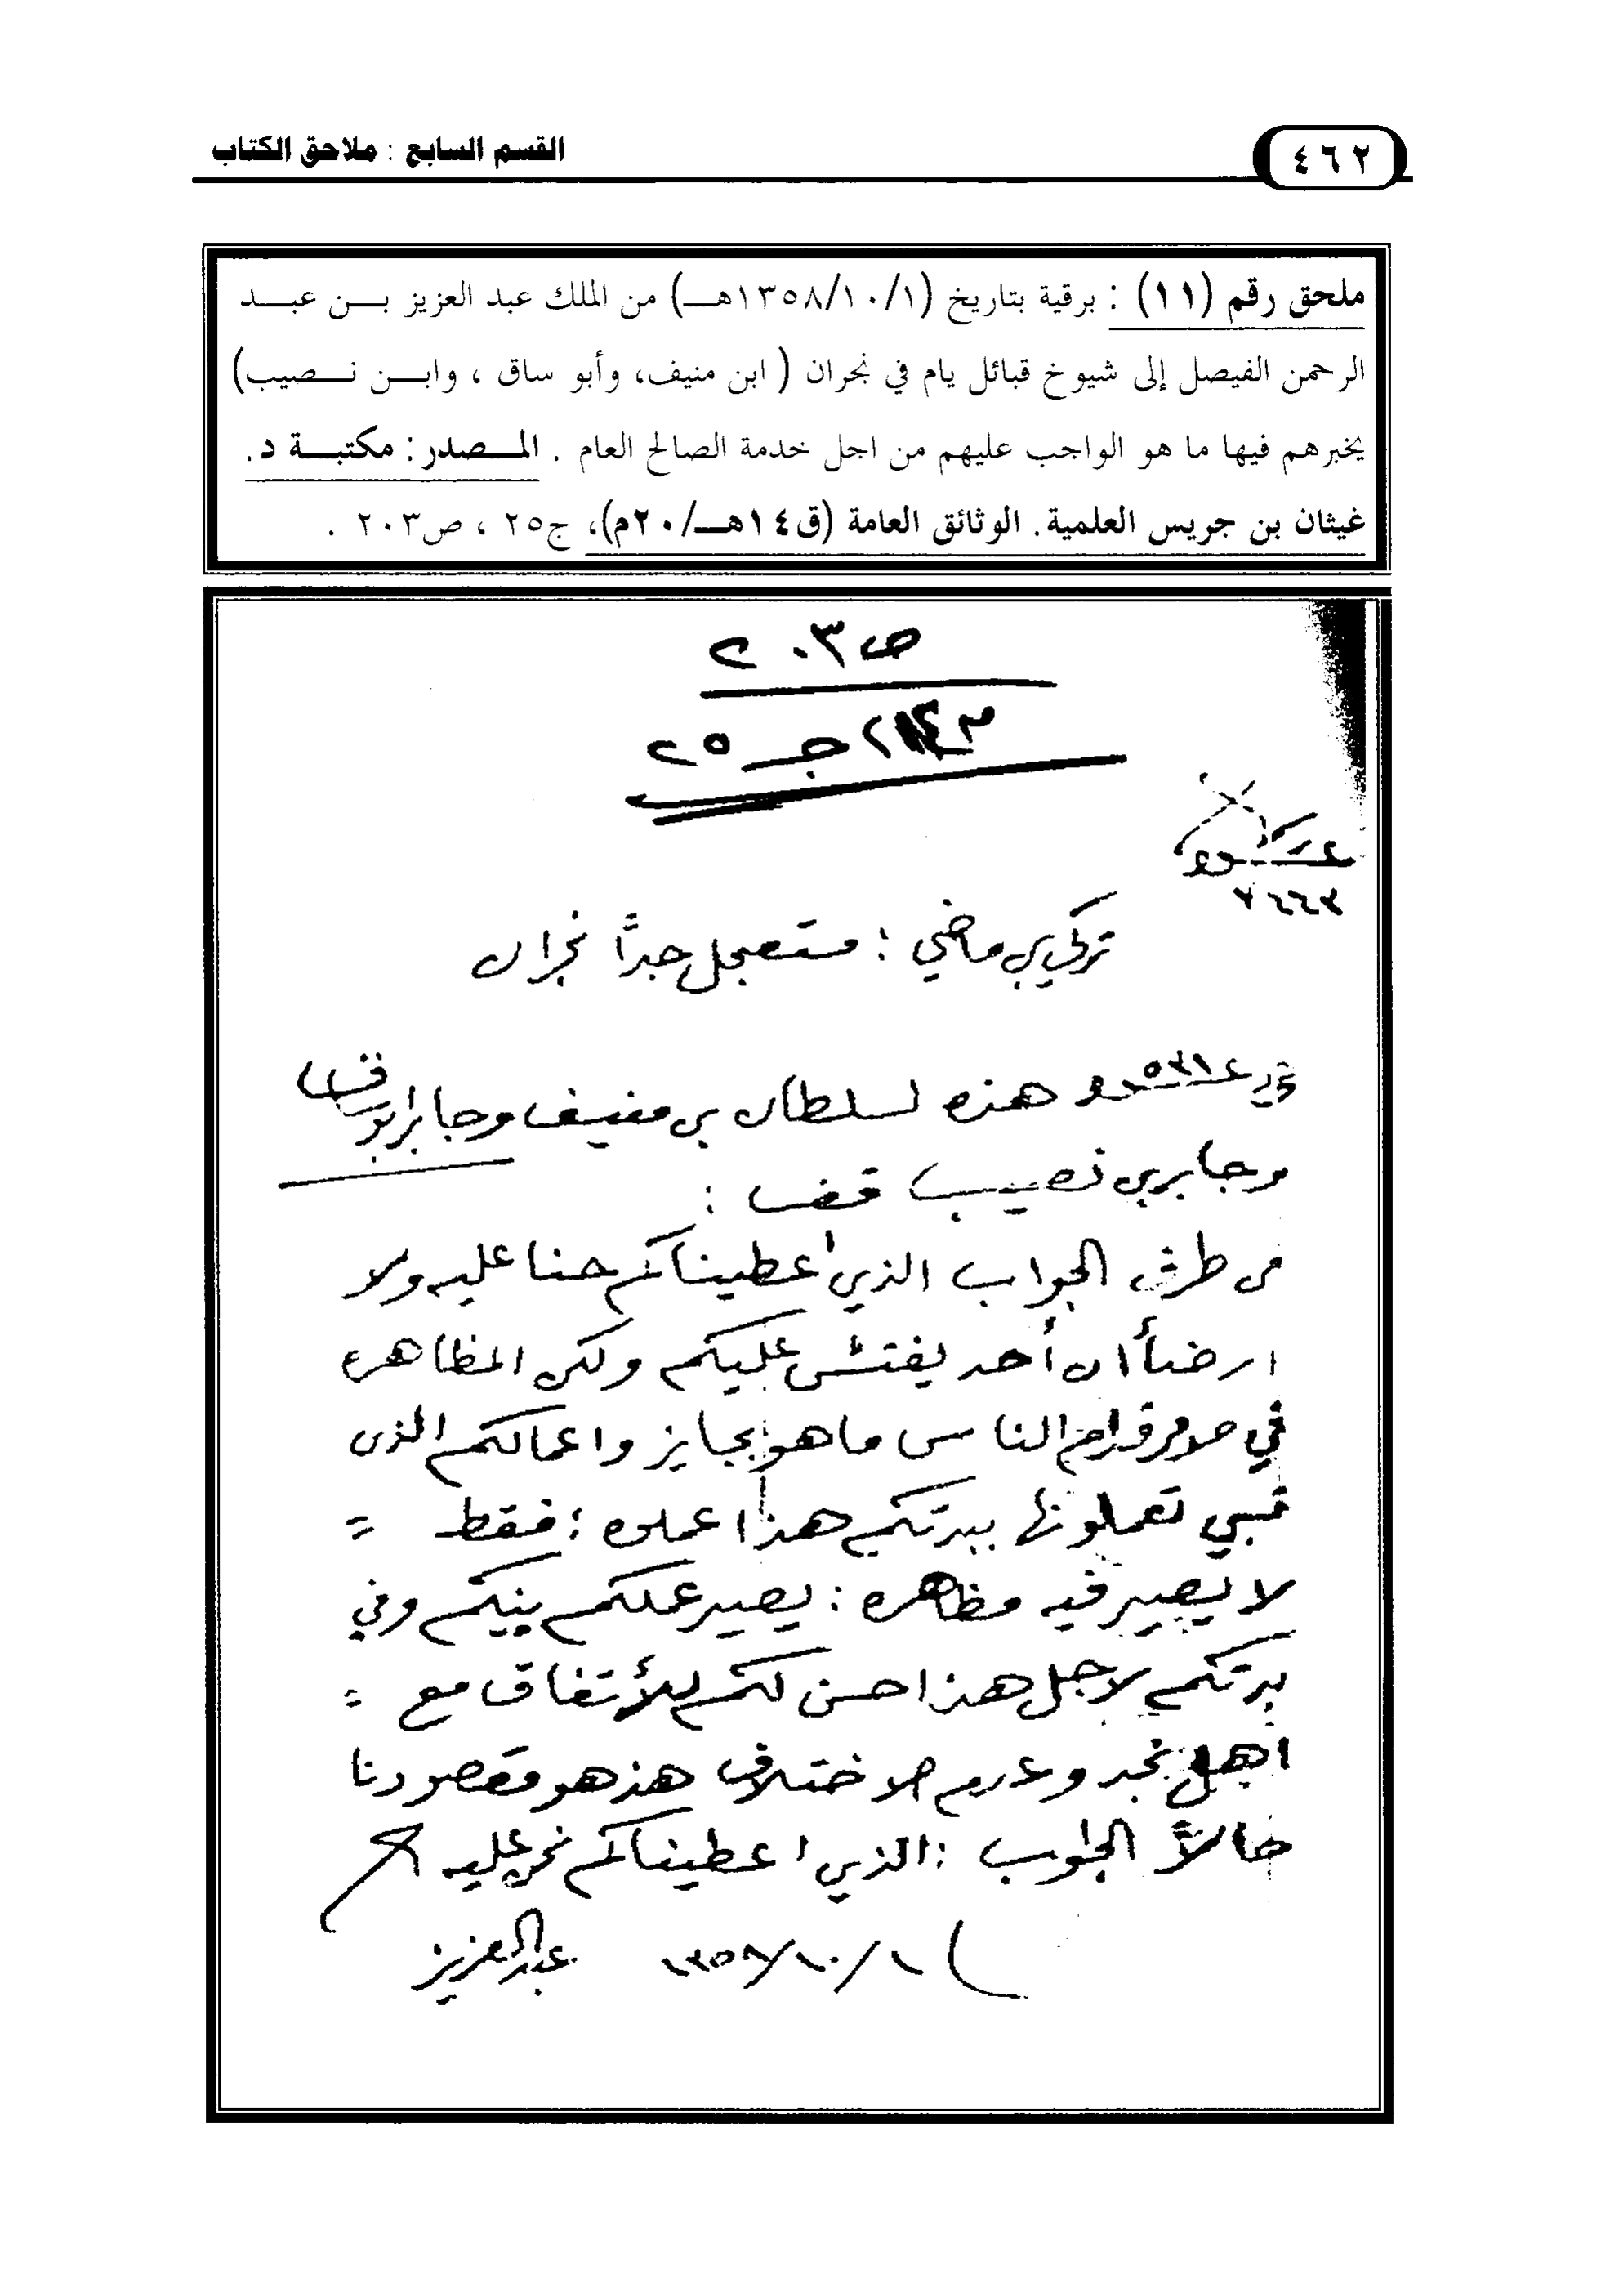 ٤٦٢
القسم السابع : ملاحق الكتاب
ملحق رقم (١١) : برقية بتاريخ (١٣٥٨/١٠/١هـ) من الملك عبد العزيز بن عبد
الرحمن الفيصل إلى شيوخ قبائل يام في نجران ( ابن منيف، وأبو ساق ، وابن نصيب)
يخبرهم فيها ما هو الواجب عليهم من اجل خدمة الصالح العام . المصدر: مكتبة د.
غيثان بن جريس العلمية. الوثائق العامة (ق١٤هـ/٢٠م)، ج٢٥ ، ص٢٠٣ .
ص٢٠٣
جـ ٢٥
عدد
٧٦٦٣
تركي بن ماضي : مستعجل جداً نجران
هذه لسلطان بن منيف وجابر ابوساق
وجابر بن نصيب :
من طرف الجواب الذي اعطيناكم حنا عليه ولا
ارضا أن أحد يفتش عليكم ولكن المظاهره
في قدام الناس ماهو بجايز واعمالكم الذى
تعملونها بديرتكم هذا عملوه : فقط =
لا يصير فيه مظاهره : يصير عملكم بينكم وفي
ديرتكم لاجل هذا احسن لكم للأتفاق مع =
اهل نجد وعدم الاختلاف هذ هو مقصودنا
حالاً الجواب : الذي اعطيناكم نحن عليه
١٣٥٨/١٠/١ عبدالعزيز